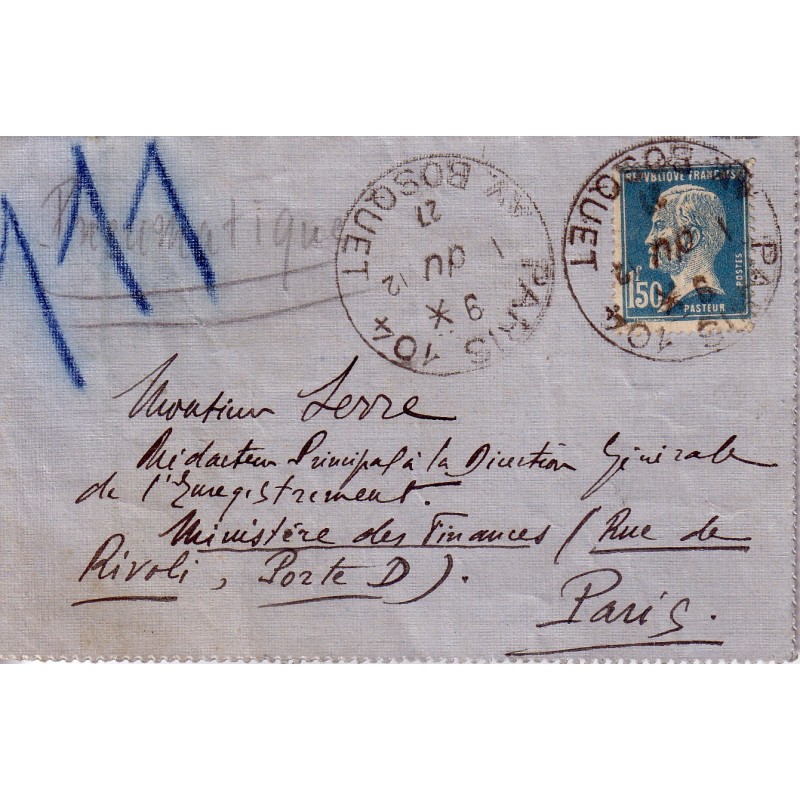 Pneumatique
PARIS 104 * AV. BOSQUET
9 *
12
1 AU
27
REPVBLIQVE FRANÇAISE
POSTES
1F50
PASTEUR
PARIS 104 BOSQUET
Monsieur Serre
Rédacteur Principal à la Direction Générale
de l'Enregistrement.
Ministère des Finances (Rue de
Rivoli, Porte D).
Paris.